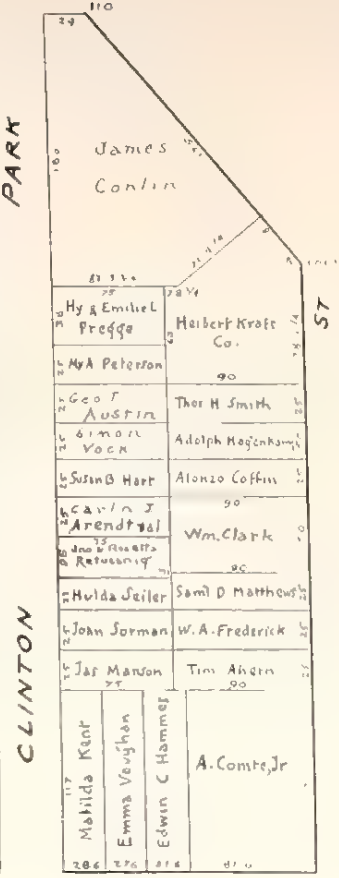 110
29
PARK
James
Conlin
180
75
78 1/4
Hy & Emilie L
Pregge
Herbert Kraft
Co.
My A Peterson
90
Geo T
Austin
Thos H Smith
25
Simon
Vock
25
Adolph Hagenkamp
Susan B Hart
25
Alonzo Coffin
Carln J
Arendt &al
25
90
Wm. Clark
75
Jno & Rosetta
90
Hulda Seiler
Saml D Matthews
John Sorman
W. A. Frederick
25
Jas Manson
75
Tim Ahern
90
25
ST
CLINTON
117
Matilda Kent
Emma Vaughan
Edwin C Hammes
A. Comte, Jr
286
276